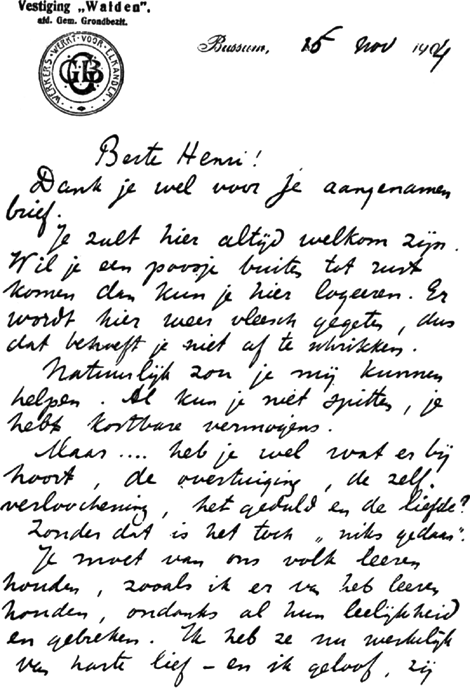 Vestiging „Walden".
afd. Gem. Grondbezit.
WERKERS · WERKT · VOOR · ELKANDER
GGB
Bussum, 25 Nov 1904
Beste Henri!
Dank je wel voor je aangenamen
brief.
Je zult hier altijd welkom zijn.
Wil je een poosje buiten tot rust
komen dan kun je hier logeeren. Er
wordt hier weer vleesch gegeten, dus
dat behoeft je niet af te schrikken.
Natuurlijk zou je mij kunnen
helpen. Al kun je niet spitten, je
hebt kostbare vermogens.
Maar .... heb je wel wat er bij
hoort, de overtuiging, de zelf-
verloochening, het geduld en de liefde?
Zonder dat is het toch „niks gedaan".
Je moet van ons volk leeren
houden, zooals ik er van heb leeren
houden, ondanks al hun leelijkheid
en gebreken. Ik heb ze nu werkelijk
van harte lief – en ik geloof, zij